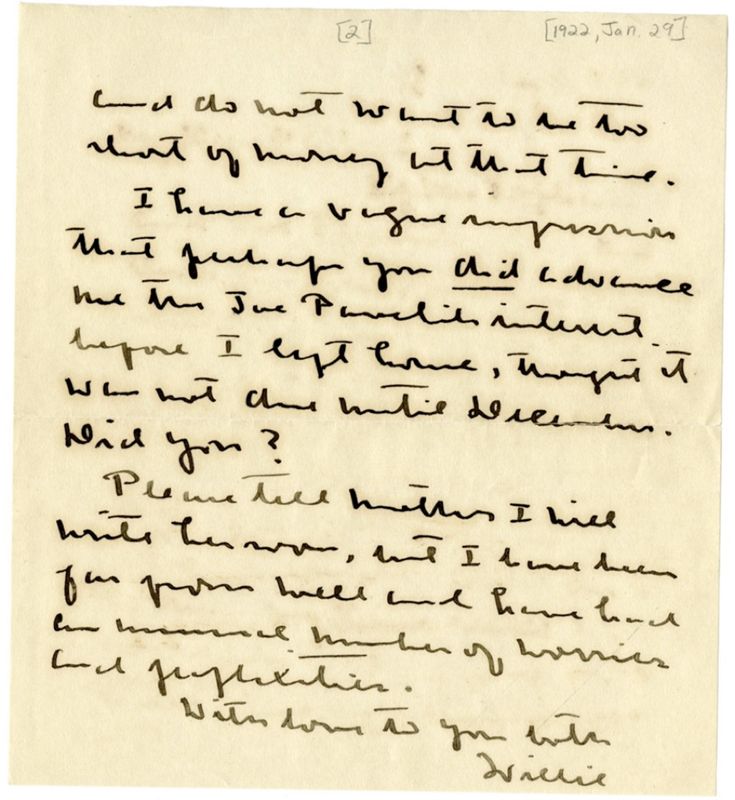 [2] [1922, Jan. 29]
and do not want to be too
short of money at that time.
I have a vague impression
that perhaps you did advance
me the Joe Pavelik interest
before I left home, though it
was not due until December.
Did you?
Please tell mother I will
write her soon, but I have been
far from well and have had
an unusual number of worries
and perplexities.
With love to you both
Willie